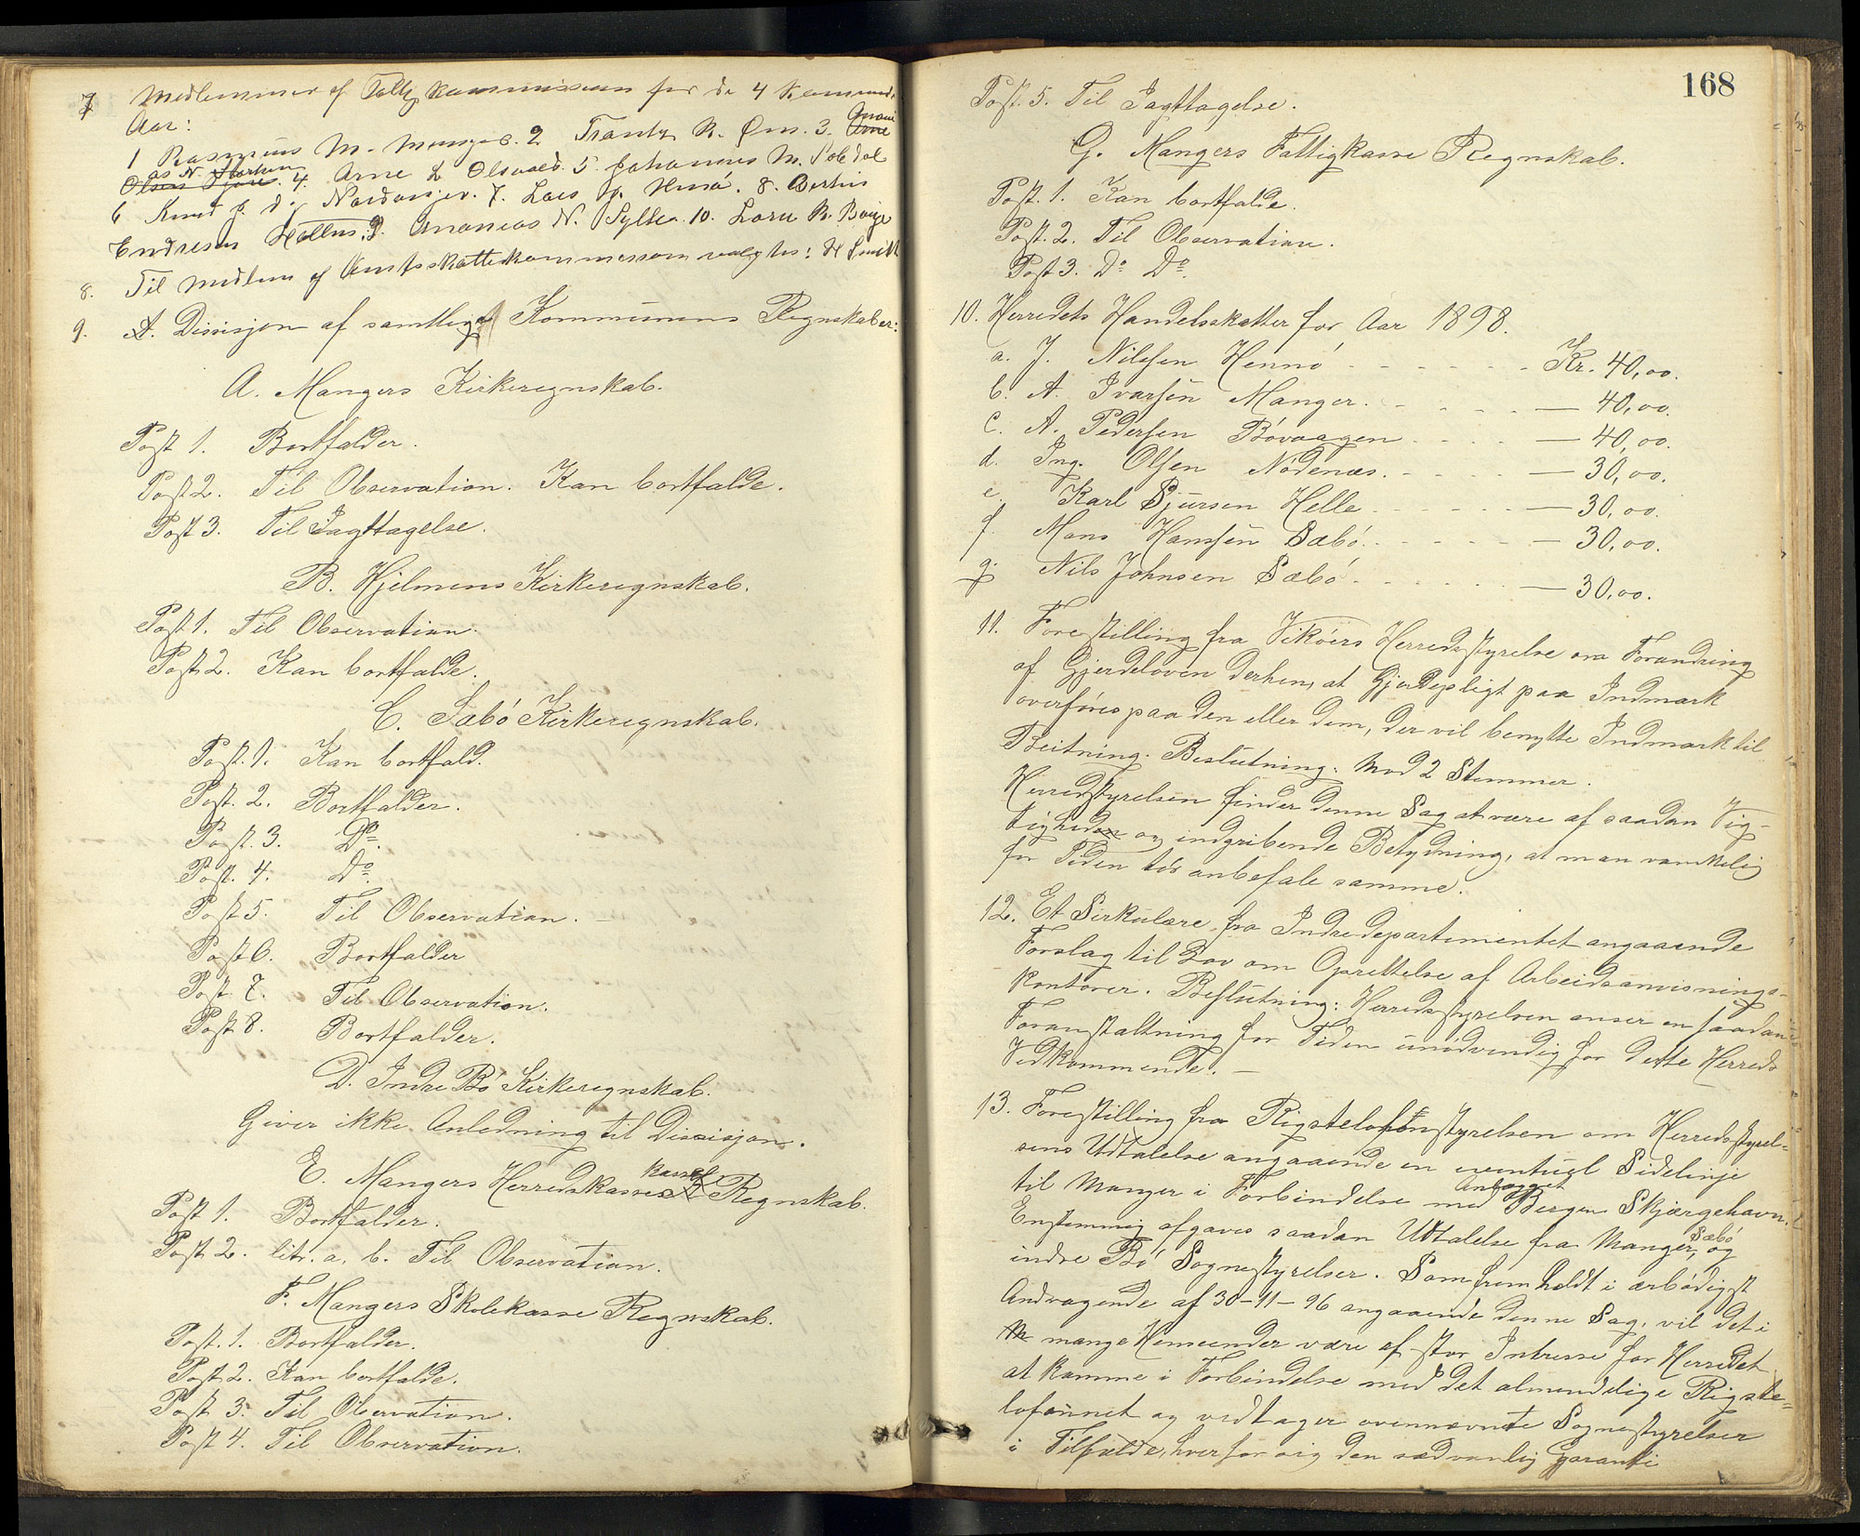 7 Medlemmer af kommissionen for de 4 komende
Aar:
1 Rasmus M. Manger. 2 Frantz R. Øen. 3. Anani
as N. 4 Arne L Olsvold. 5. Johannes M. Soledal
6 Knud J. d.y. 7. Lars J. Hennö. 8. Bertin
Endresen 9. Ananias N. Sylta. 10. Lars R. Bøige
8. Til Medlem af Amtsskattekommissionen valgtes: H Smith
9. A. Dissisjon af samtlige Kommunens Regnskaber:
A. Mangers Kirkeregnskab.
Post 1. Bortfalder.
Post 2. Til Observation. Kan bortfalde.
Post 3. Til Iagttagelse.
B. Hjelmens Kirkeregnskab.
Post 1. Til Observation.
Post 2. Kan bortfalde.
C. Sæbö Kirkeregnskab.
Post. 1. Kan bortfald.
Post. 2. Bortfalder.
Post. 3. Do.
Post. 4. Do.
Post 5. Til Observation. –
Post 6. Bortfalder
Post. 7. Til Observation.
Post 8. Bortfalder.
D. Indre Bö Kirkeregnskab.
Giver ikke Anledning til Dissisjon.
E. Mangers Herredskasses Regnskab.
Post 1. Bortfalder.
Post 2. litr. a. b. Til Observation.
F. Mangers Skolekasse Regnskab.
Post. 1. Bortfalder.
Post 2. Kan bortfalde.
Post 3. Til Observation.
Post 4. Til Observation.
168
Post. 5. Til Iagttagelse.
G. Mangers Fattigkasse Regnskab.
Post. 1. Kan bortfalde.
Post. 2. Til Observation.
Post 3. Do Do.
10. Herredets Handelsskatter for Aar 1898.
a. J. Nilssen Hennö - - - - - - Kr. 40,00.
b. A. Ivarsen Manger. - - - - - — 40,00.
c. A. Pedersen Bövaagen - - - - — 40,00.
d. Ing. Olsen Nödenæs. - - - - — 30,00.
e. Karl Sjursen Helle - - - - - — 30,00.
f. Mons Hanssen Sæbö. - - - - - — 30,00.
g. Nils Johnsen Sæbö - - - - - — 30,00.
11. Forestilling fra Vikörs Herredsstyrelse om Forandring
af Gjerdeloven derhen, at Gjerdepligt paa Indmark
overföres paa den eller dem, der vil benytte Indmark til
Beitning. Beslutning: Mod 2 Stemmer.
Herredsstyrelsen finder denne Sag at være af saadan Vig-
tigheden og indgribende Betydning, at man vanskelig
for Tiden tör anbefale samme.
12. Et Sirkulære fra Indredepartementet angaaende
Forslag til Lov om Oprettelse af Arbeidsanvisnings-
kontorer. Beslutning: Herredsstyrelsen anser en saadan
Foranstaltning for Tiden unödvendig for dette Herreds
Vedkommende. –
13. Forestilling fra Rigstelefonstyrelsen om Herredsstyrel-
sens Udtalelse angaaende en eventuel Sidelinje
til Manger i Forbindelse med Anlægget Bergen Skjærgehavn.
Enstemmig afgaves saadan Udtalelse fra Manger, Sæbö og
indre Bö Sognestyrelser. Som fremholdt i ærbödigst
Andragende af 30-11-96 angaaende denne Sag, vil det i
mange Henseender være af stor Intresse for Herredet
at komme i Forbindelse med det almindelige Rigste-
lefonnet og vedtager ovennævnte Sognestyrelser
i Tilfælde, hver for sig den sædvanlig Garanti